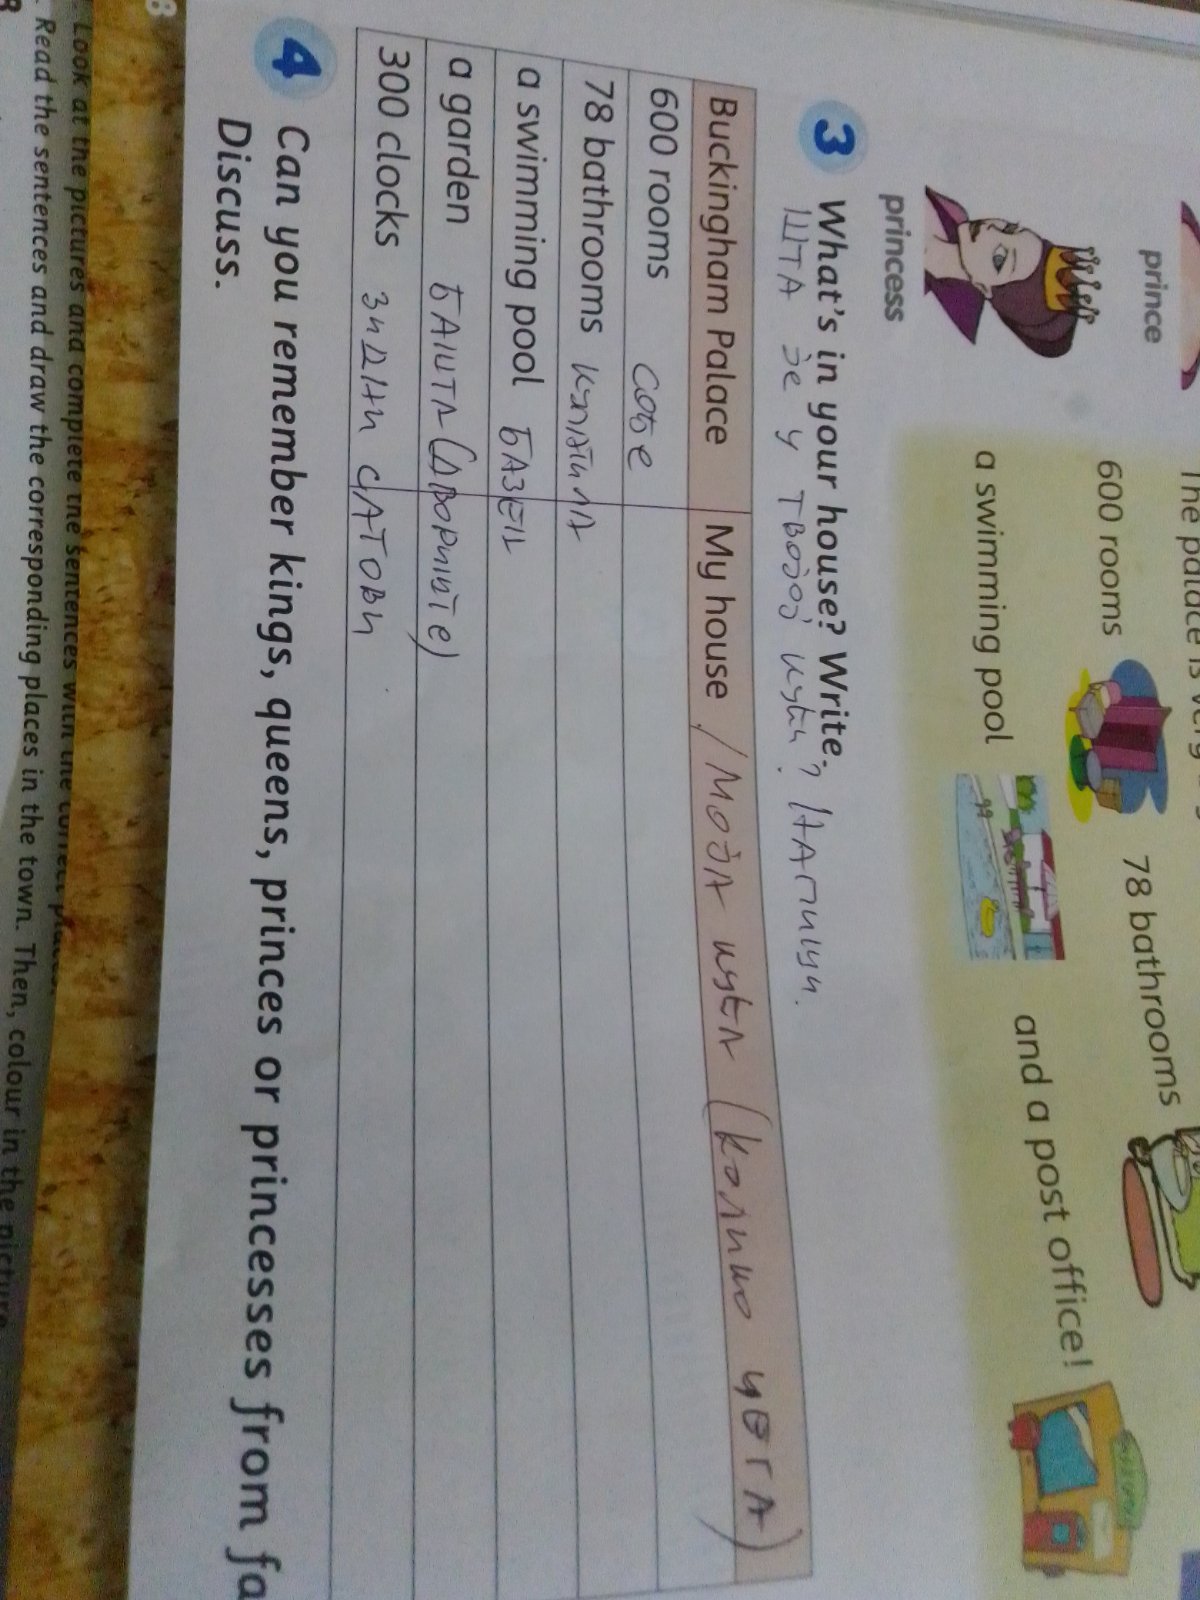 prince
The palace is
600 rooms
78 bathrooms
princess
a swimming pool
and a post office!
3 What's in your house? Write.
ШТА ЈЕ У ТВОЈОЈ КУЋИ? НАПИШИ.
Buckingham Palace My house / МОЈА КУЋА (КОЛИКО ЧЕГА)
600 rooms СОБЕ
78 bathrooms КУПАТИЛА
a swimming pool БАЗЕН
a garden БАШТА (ДВОРИШТЕ)
300 clocks ЗИДНИ САТОВИ
4 Can you remember kings, queens, princes or princesses from fa
Discuss.
8
Look at the pictures and complete the sentences with the correct places.
Read the sentences and draw the corresponding places in the town. Then, colour in the picture